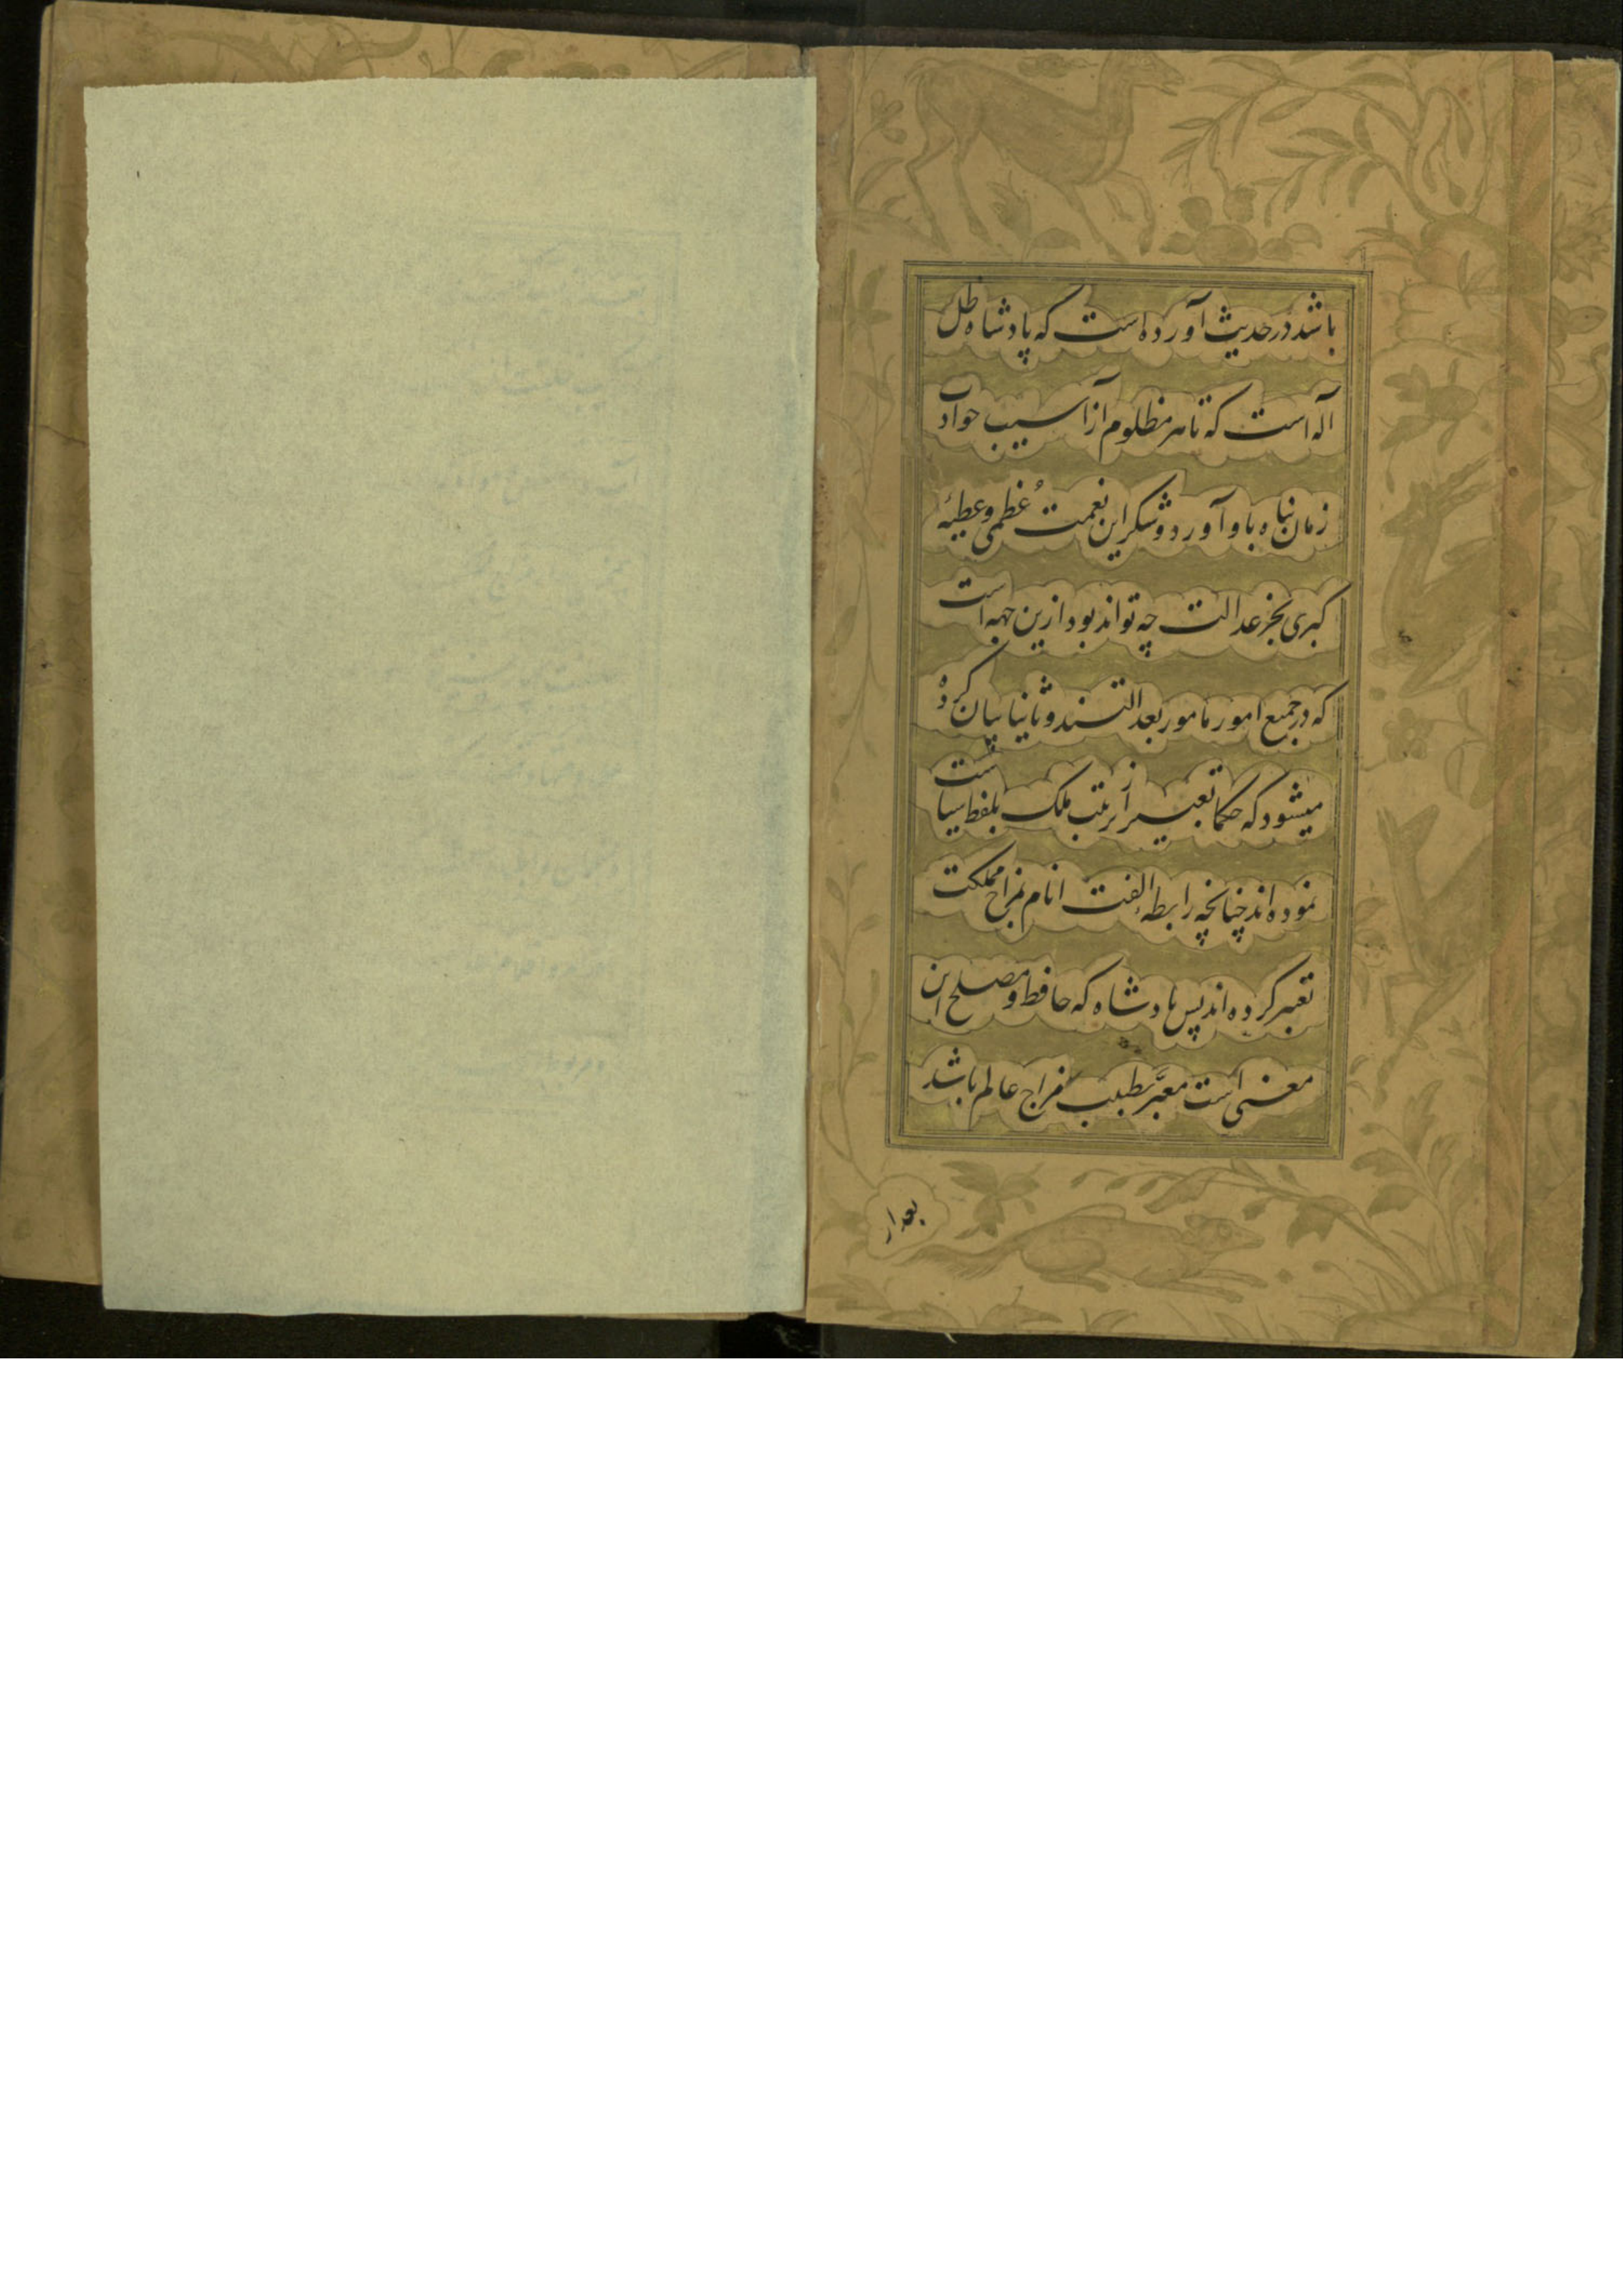 باشد در حدیث آورده است که پادشاه ظل
اله است که تا هر مظلوم از آسیب حوادث
زمان پناه باو آورد و شکر این نعمت عُظمی و عطیهٔ
کبری بجز عدالت چه تواند بود ازین جهه است
که در جمیع امور مامور بعدالتند و ثانیا بیان کرده
میشود که حکما تعبیر از ترتیب ملک بلفظ سیاست
نموده اند چنانچه رابطه الفت انام بمزاج مملکت
تعبیر کرده اند پس پادشاه که حافظ و مصلح این
معنی است معبَّر بطبیب مزاج عالم باشد
بعد از